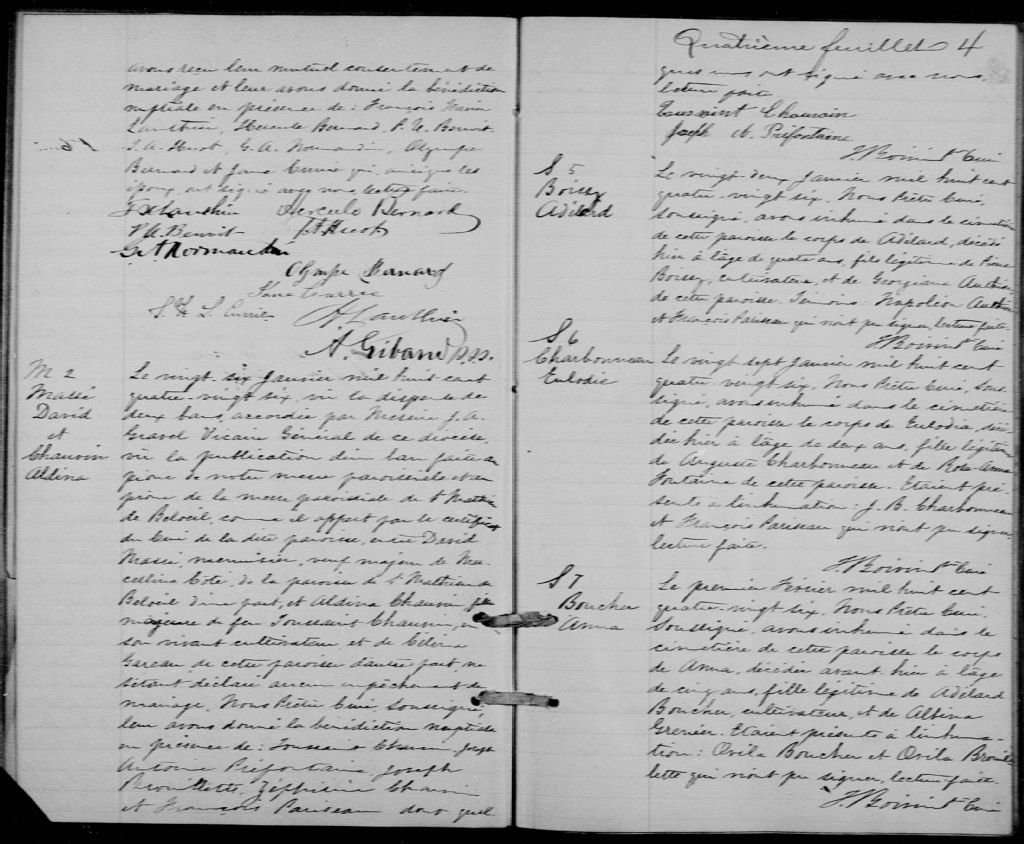 avons reçu leur mutuel consentement de
mariage et leur avons donné la bénédiction
nuptiale en présence de : François Xavier
Lauthier, Hercule Bernard, P. A. Benoit
J. A. Huot, G. A. Normandin, Olympe
Bernard et Jane Currie qui, ainsi que les
époux, ont signé avec nous, lecture faite.
F X Lauthier Hercule Bernard
P A. Benoit J A Huot
G. A Normandin
Olympe Bernard
Jane Currie
S. H. L. Currie
A. Giband p.s.s.
M 2
Massé
David
et
Chauvin
Aldina
Le vingt-six Janvier mil huit cent
quatre-vingt six, vu la dispense de
deux bans, accordée par Messire J. A.
Gravel Vicaire Général de ce diocèse,
vu la publication d'un ban faite au
prône de notre messe paroissiale et au
prône de la messe paroissiale de St Mathieu
de Beloeil, comme il appert par le certificat
du Curé de la dite paroisse, entre David
Massé, menuisier, veuf majeur de Mar-
cellina Coté, de la paroisse de St Mathieu de
Beloeil d'une part, et Aldina Chauvin, fille
majeure de feu Toussaint Chauvin, en
son vivant cultivateur et de Célina
Gareau de cette paroisse d'autre part, ne
s'étant déclaré aucun empêchement de
mariage, Nous Prêtre Curé, soussigné,
leur avons donné la bénédiction nuptiale
en présence de : Toussaint Chauvin, Joseph
Antoine Préfontaine, Joseph
Brouillette, Zéphirin Chauvin
et François Pariseau dont quel
Quatrième feuillet 4
ques uns ont signé avec nous.
lecture faite
Toussaint Chauvin
Joseph A. Préfontaine
J. Boivin Curé
S 5
Boissy
Adélard
Le vingt deux Janvier mil huit cent
quatre-vingt six, Nous Prêtre Curé,
soussigné, avons inhumé dans le cimetière
de cette paroisse le corps de Adélard, décédé
hier à l'âge de quatre ans, fils légitime de Pierre
Boissy, cultivateur, et de Georgiana Authier
de cette paroisse. Témoins : Napoléon Authier
et François Pariseau qui n'ont pu signer, lecture faite.
J. Boivin Curé
S 6
Charbonneau
Eulodie
Le vingt sept Janvier mil huit cent
quatre-vingt six, Nous Prêtre Curé, Sous-
signé, avons inhumé dans le cimetière
de cette paroisse le corps de Eulodia, décé-
dée hier à l'âge de deux ans, fille légitime
de Auguste Charbonneau et de Rose-Anna
Fontaine de cette paroisse. Etaient pré-
sents à l'inhumation : J. B. Charbonneau
et François Pariseau qui n'ont pu signer,
lecture faite.
J. Boivin Curé
S 7
Boucher
Anna
Le premier Février mil huit cent
quatre vingt six, Nous Prêtre Curé,
Soussigné, avons inhumé dans le
cimetière de cette paroisse le corps
de Anna, décédée avant hier à l'âge
de cinq ans, fille légitime de Adélard
Boucher, cultivateur, et de Albina
Grenier. Etaient présents à l'inhuma-
tion : Ovila Boucher et Ovila Brouil
lette qui n'ont pu signer, lecture faite.
J. Boivin Curé